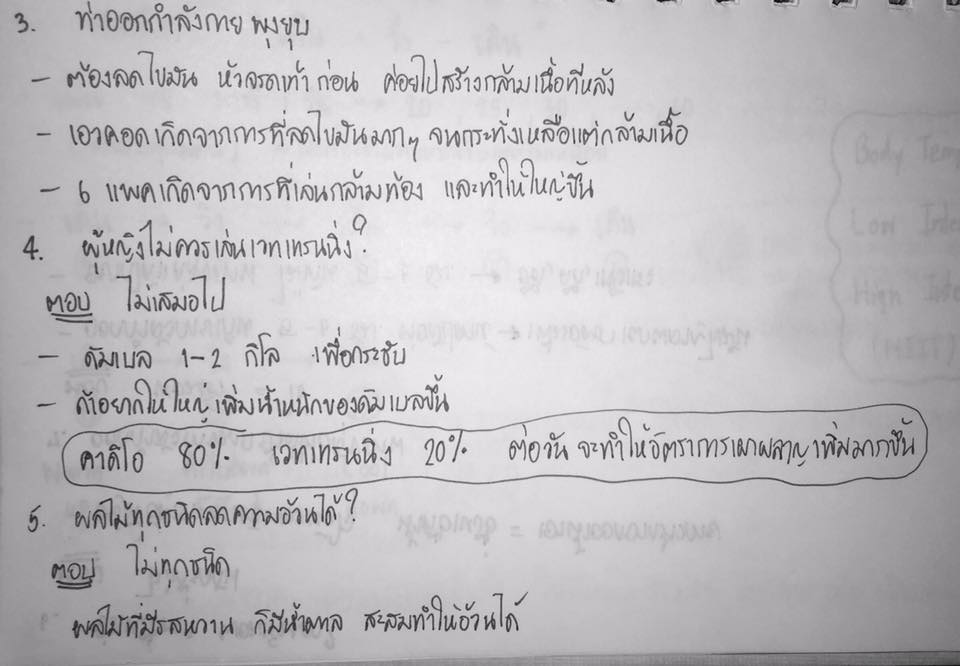 3. ท่าออกกำลังกาย พุงยุบ
- ต้องลดไขมัน หัวจรดเท้า ก่อน ค่อยไปสร้างกล้ามเนื้อทีหลัง
- เอวคอดเกิดจากการที่ลดไขมันมากๆ จนกระทั่งเหลือแต่กล้ามเนื้อ
- 6 แพคเกิดจากการที่เล่นกล้ามท้อง และทำให้ใหญ่ขึ้น
4. ผู้หญิงไม่ควรเล่นเวทเทรนนิ่ง?
ตอบ ไม่เสมอไป
- ดัมเบล 1-2 กิโล เพื่อกระชับ
- ถ้าอยากให้ใหญ่เพิ่มน้ำหนักของดัมเบลขึ้น
คาดิโอ 80% เวทเทรนนิ่ง 20% ต่อวัน จะทำให้อัตราการเผาผลาญเพิ่มมากขึ้น
5. ผลไม้ทุกชนิดลดความอ้วนได้?
ตอบ ไม่ทุกชนิด
ผลไม้ที่มีรสหวาน ก็มีน้ำตาล สะสมทำให้อ้วนได้